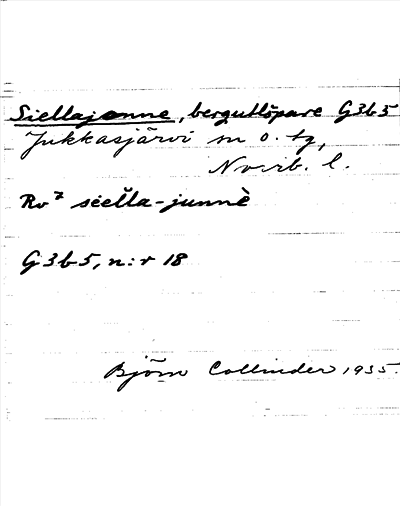 Siellajonne, bergutlöpare G3b5
Jukkasjärvi sn o. tg,
Norrb. l.
Rv⁷ siella-junnè
G3b5, n:r 18
Björn Collinder 1935.